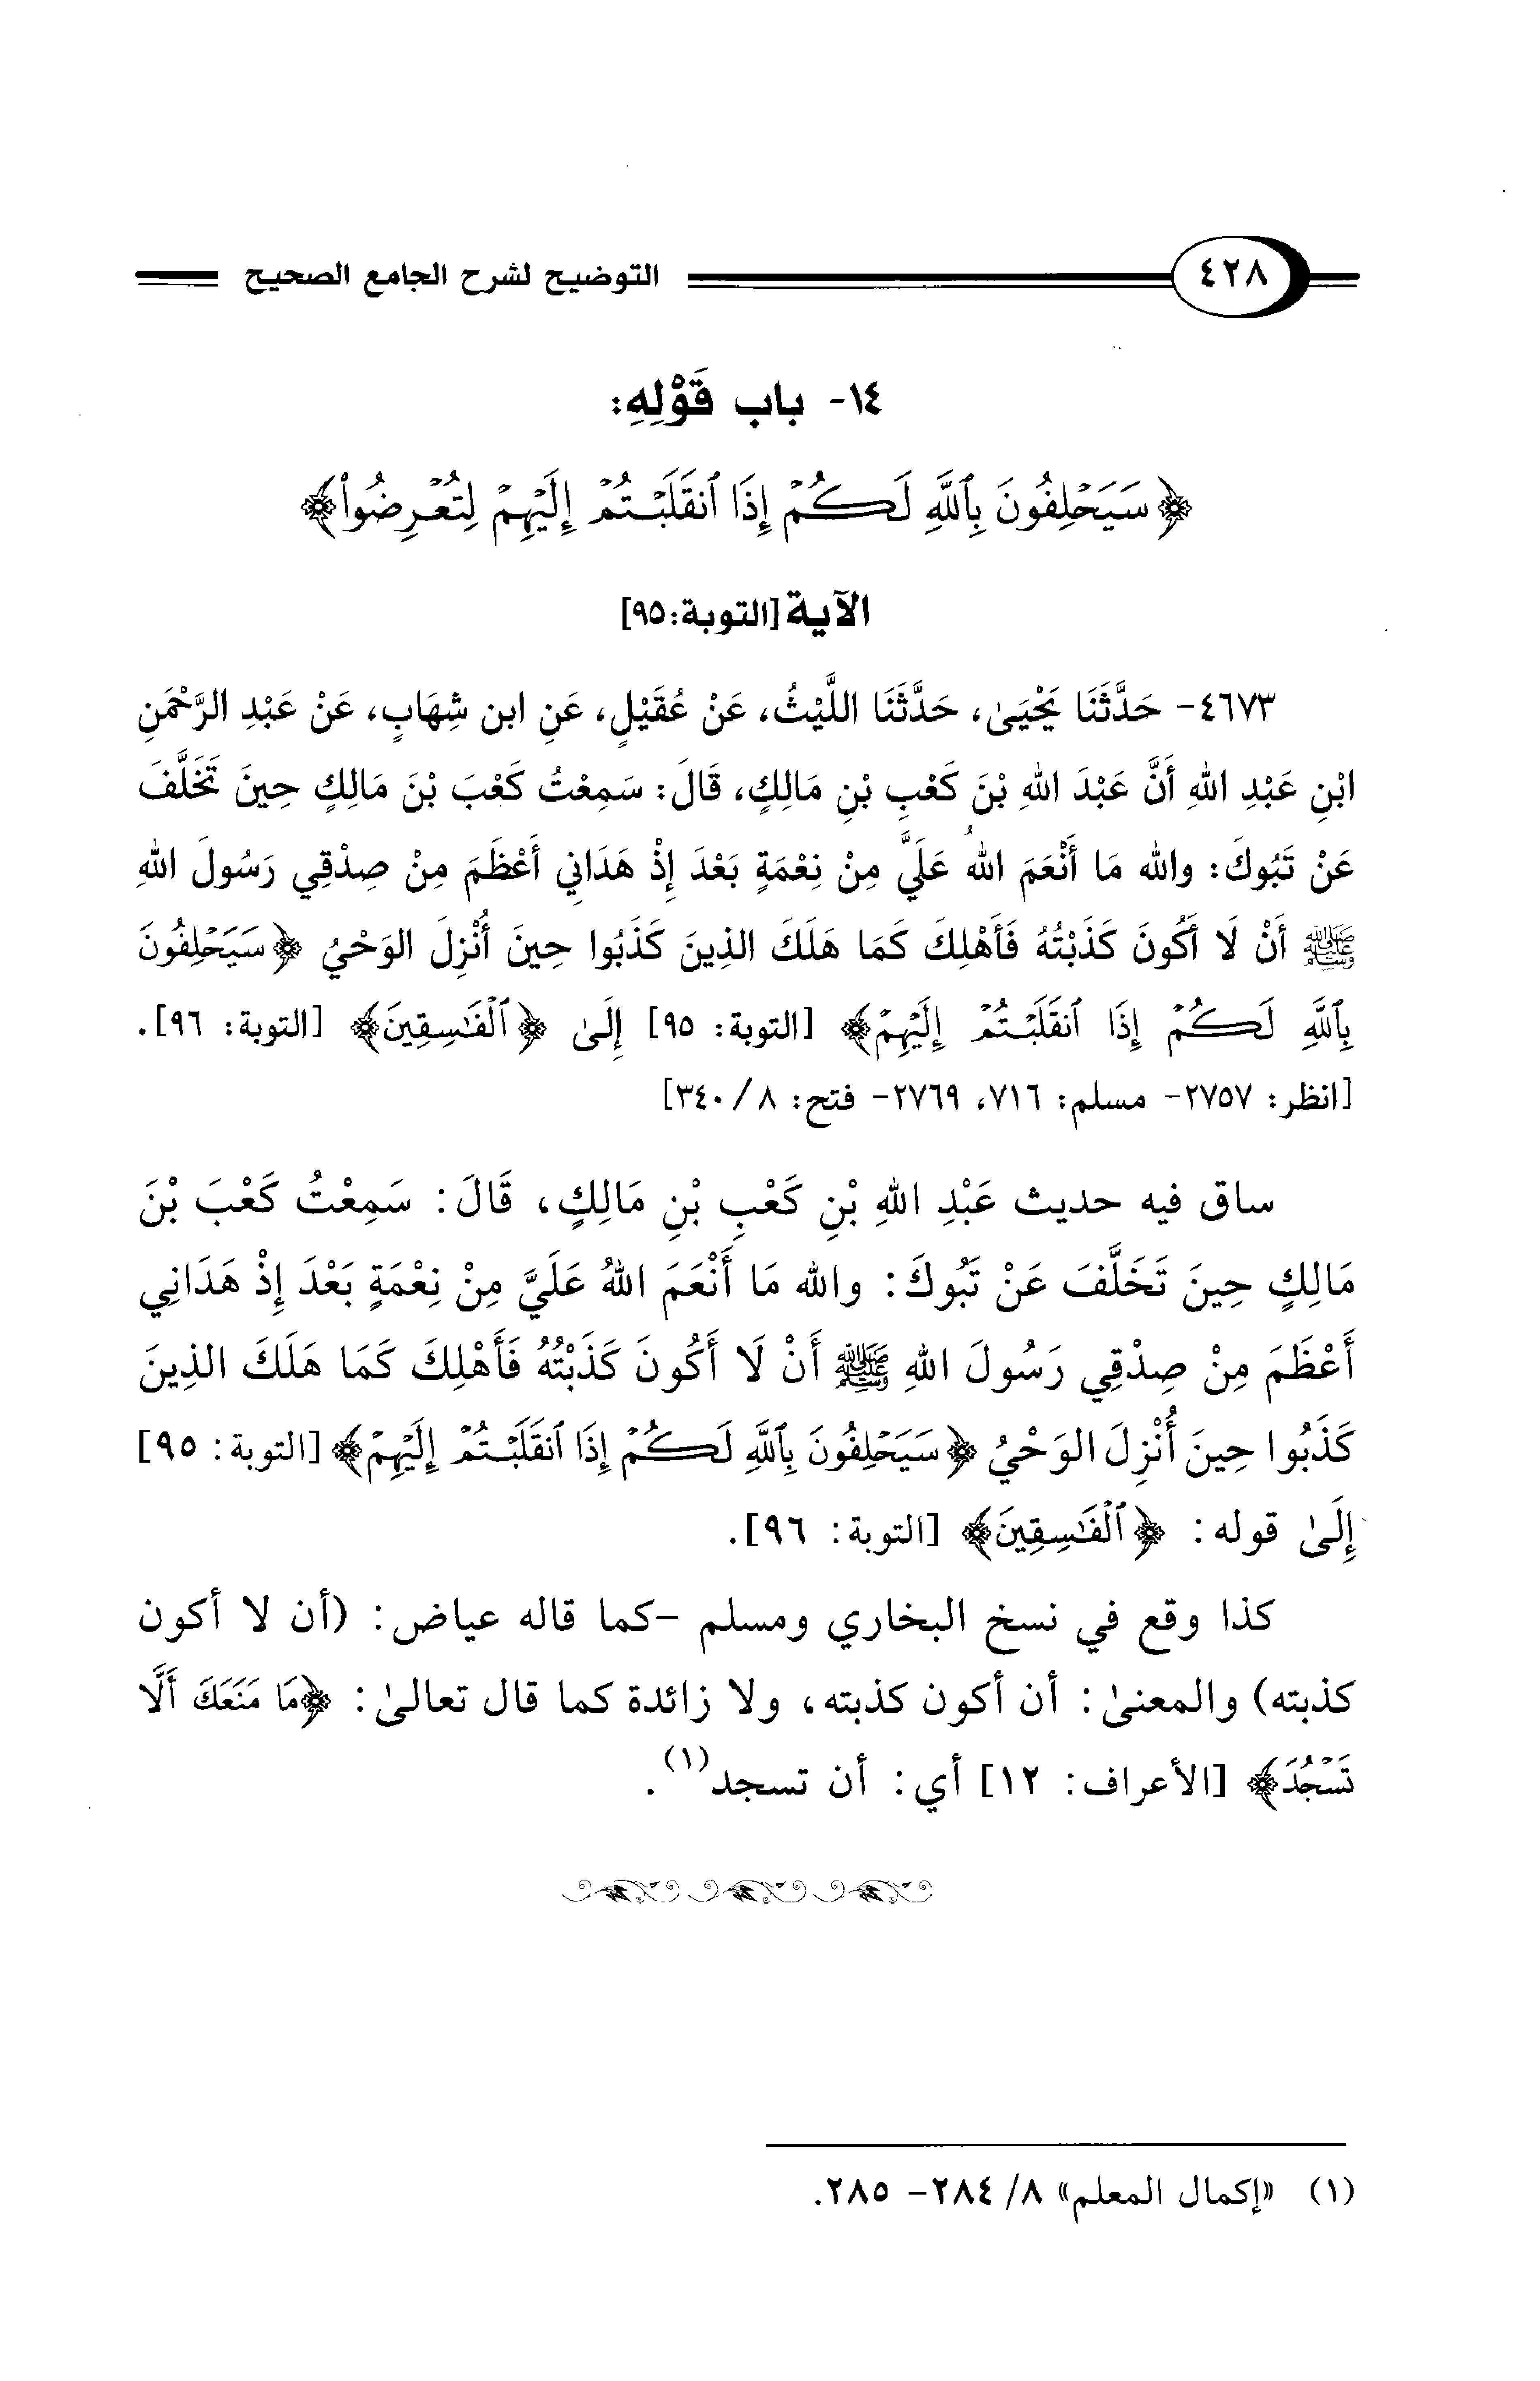 ٤٢٨ التوضيح لشرح الجامع الصحيح
١٤- باب قَوْلِهِ:
﴿سَيَحْلِفُونَ بِٱللَّهِ لَكُمْ إِذَا ٱنقَلَبْتُمْ إِلَيْهِمْ لِتُعْرِضُوا۟﴾
الآية [التوبة:٩٥]
٤٦٧٣- حَدَّثَنَا يَحْيَىٰ، حَدَّثَنَا اللَّيْثُ، عَنْ عُقَيْلٍ، عَنِ ابن شِهَابٍ، عَنْ عَبْدِ الرَّحْمَنِ
ابْنِ عَبْدِ اللهِ أَنَّ عَبْدَ اللهِ بْنَ كَعْبِ بْنِ مَالِكٍ، قَالَ: سَمِعْتُ كَعْبَ بْنَ مَالِكٍ حِينَ تَخَلَّفَ
عَنْ تَبُوكَ: والله مَا أَنْعَمَ اللهُ عَلَيَّ مِنْ نِعْمَةٍ بَعْدَ إِذْ هَدَانِي أَعْظَمَ مِنْ صِدْقِي رَسُولَ اللهِ
ﷺ أَنْ لَا أَكُونَ كَذَبْتُهُ فَأَهْلِكَ كَمَا هَلَكَ الذِينَ كَذَبُوا حِينَ أُنْزِلَ الوَحْيُ ﴿سَيَحْلِفُونَ
بِٱللَّهِ لَكُمْ إِذَا ٱنقَلَبْتُمْ إِلَيْهِمْ﴾ [التوبة: ٩٥] إِلَىٰ ﴿ٱلْفَـٰسِقِينَ﴾ [التوبة: ٩٦].
[انظر: ٢٧٥٧- مسلم: ٧١٦، ٢٧٦٩- فتح: ٨/ ٣٤٠]
ساق فيه حديث عَبْدِ اللهِ بْنِ كَعْبِ بْنِ مَالِكٍ، قَالَ: سَمِعْتُ كَعْبَ بْنَ
مَالِكٍ حِينَ تَخَلَّفَ عَنْ تَبُوكَ: والله مَا أَنْعَمَ اللهُ عَلَيَّ مِنْ نِعْمَةٍ بَعْدَ إِذْ هَدَانِي
أَعْظَمَ مِنْ صِدْقِي رَسُولَ اللهِ ﷺ أَنْ لَا أَكُونَ كَذَبْتُهُ فَأَهْلِكَ كَمَا هَلَكَ الذِينَ
كَذَبُوا حِينَ أُنْزِلَ الوَحْيُ ﴿سَيَحْلِفُونَ بِٱللَّهِ لَكُمْ إِذَا ٱنقَلَبْتُمْ إِلَيْهِمْ﴾ [التوبة: ٩٥]
إِلَىٰ قوله: ﴿ٱلْفَـٰسِقِينَ﴾ [التوبة: ٩٦].
كذا وقع في نسخ البخاري ومسلم -كما قاله عياض: (أن لا أكون
كذبته) والمعنىٰ: أن أكون كذبته، ولا زائدة كما قال تعالىٰ: ﴿مَا مَنَعَكَ أَلَّا
تَسْجُدَ﴾ [الأعراف: ١٢] أي: أن تسجد(١).
(١) «إكمال المعلم» ٨/ ٢٨٤- ٢٨٥.